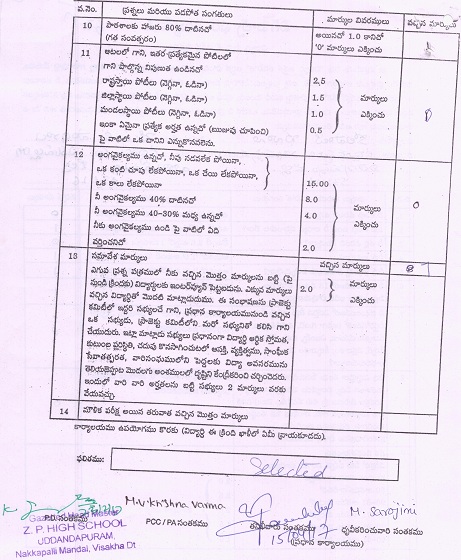 వ.నెం. ప్రశ్నలు మరియు పదపోత సంగతులు మార్కుల వివరములు వచ్చిన మార్కులు
10 పాఠశాలకు హాజరు 80% దాటినచో అయినచో 1.0 కానిచో
(గత సంవత్సరం) '0' మార్కులు ఎక్కించు
11 ఆటలలో గాని, ఇతర ప్రత్యేకమైన పోటీలలో
గాని పాల్గొన్న నిపుణుత ఉండినచో
రాష్ట్రస్థాయి పోటీలు (నెగ్గినా, ఓడినా) 2.5
జిల్లాస్థాయి పోటీలు (నెగ్గినా, ఓడినా) 1.5 మార్కులు
మండలస్థాయి పోటీలు (నెగ్గినా, ఓడినా) 1.0 ఎక్కించు 0
ఇంకా ఏమైనా ప్రత్యేక అర్హత ఉన్నచో (ఋజువు చూపించి) 0.5
పై వాటిలో ఒక దానిని ఎన్నుకొనవలెను.
12 అంగవైకల్యము ఉన్నచో, నీవు నడవలేక పోయినా,
ఒక కంటి చూపు లేకపోయినా, ఒక చేయి లేకపోయినా,
ఒక కాలు లేకపోయినా 15.00
నీ అంగవైకల్యము 40% దాటినచో 8.0 మార్కులు 0
నీ అంగవైకల్యము 40-30% మధ్య ఉన్నచో 4.0 ఎక్కించు
నీకు అంగవైకల్యము ఉండి పై వాటిలో ఏది
వర్తించనిచో 2.0
13 సమావేశ మార్కులు వచ్చిన మార్కులు
ఎగువ ప్రశ్న పత్రములో నీకు వచ్చిన మొత్తం మార్కులను బట్టి (పై
నుండి క్రిందకు) విద్యార్థులకు ఇంటర్వ్యూకి పెట్టబడును. ఎక్కువ మార్కులు 2.0 మార్కులు
వచ్చిన విద్యార్థితో మొదట మాట్లాడుదుము. ఈ సంభాషణను ప్రాజెక్టు ఎక్కించు
కమిటీలో ఇద్దరి సభ్యులచే గాని, ప్రధాన కార్యాలయమునుండి వచ్చిన
ఒక సభ్యుడు, ప్రాజెక్టు కమిటీలోని మరో సభ్యునితో కలిసి గాని
చేయుదురు. ఇట్లా మాట్లాడు సభ్యులు ప్రధానంగా విద్యార్థి ఆర్థిక స్తోమత,
కుటుంబ పరిస్థితి, చదువు కొనసాగించుటలో ఆసక్తి, వ్యక్తిత్వము, సాంఘిక
సేవాతత్పరత, వారిసంఘములోని పెద్దలకు విద్యా అవసరమును
తెలియజెప్పుట మొదలగు అంశములలో దృష్టిని కేంద్రీకరించి చర్చించెదరు.
ఇందులో వారి వారి అర్హతలను బట్టి సభ్యులు 2 మార్కులు వరకు
వేయవచ్చు.
14 మౌలిక పరీక్ష అయిన తరువాత వచ్చిన మొత్తం మార్కులు
కార్యాలయము ఉపయోగము కొరకు (విద్యార్థి ఈ క్రింది ఖాళీలో ఏమీ వ్రాయకూడదు).
ఫలితము: Selected
M.V. Krishna Varma M. Sarojini
P.D. సంతకము PCC / PA సంతకము సంతకము ధృవీకరించువారి సంతకము
15/09/17 (ప్రధాన కార్యాలయం)
Z. P. HIGH SCHOOL
UDDANDAPURAM,
Nakkapalli Mandal, Visakha Dt